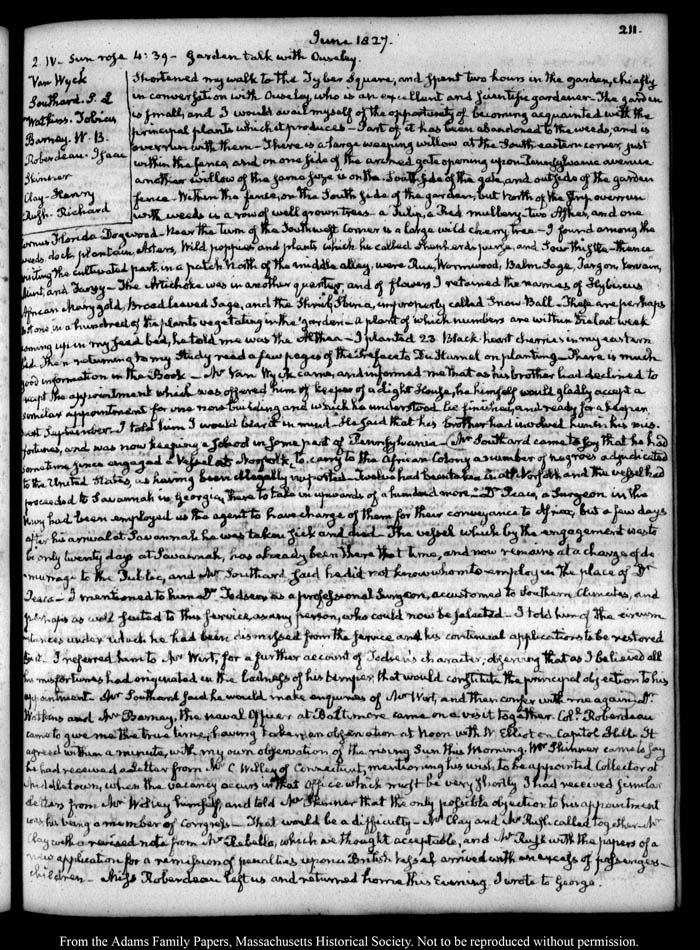 211.
June 1827.
2. IV. Sun rose 4:39 - Garden talk with Ouseley.
Van Wyck
Southard. S. L
Watkins. Tobias
Barney. W. B.
Roberdeau. Isaac
Skinner
Clay. Henry
Rush. Richard
Shortened my walk to the Tyber Square, and spent two hours in the garden, chiefly
in conversation with Ouseley, who is an excellent and scientific gardener - The garden
is small, and I would avail myself of the opportunity of becoming acquainted with the
principal plants which it produces - Part of it has been abandoned to the weeds, and is
overrun with them - There is a large weeping willow at the South eastern corner, just
within the fence, and on one side of the arched gate opening upon Pennsylvania avenue
another willow of the same size is on the South side of the gate, and outside of the garden
fence - Within the fence, on the South side of the garden, but North of the strip overrun
with weeds is a row of well grown trees - a Tulip, a Red mulberry, two Ashes, and one
Cornus Florida Dogwood - Near the turn of the Southwest corner is a large wild cherry tree - I found among the
weeds, dock, plantain, Asters, Wild poppies and plants which he called Shepherds purse, and Sour thistle - thence
visiting the cultivated part, in a patch North of the middle alley, were Rue, Wormwood, Balm, Sage, Tarragon, Vervain,
Mint, and Tansy - The Artichoke was in another quarter, and of flowers I retained the names of Hybiscus
African Marygold, Broad leaved Sage, and the Shrub improperly called Snow Ball. These are perhaps
not one in a hundred of the plants vegetating in the garden - a plant of which numbers are within the last week
coming up in my seed bed, he told me was the Althea - I planted 23 Black heart cherries in my eastern
bed. Then returning to my Study read a few pages of the Preface to Du Hamel on planting - There is much
good information in the Book - Mr Van Wyck came, and informed me that as his brother had declined to
accept the appointment which was offered him of keeper of a Light House, he himself would gladly accept a
similar appointment for one now building and which he understood be finished, and ready for a keeper
next September - I told him I would bear it in mind - He said that his brother had involved him in his mis-
fortunes, and was now keeping a School in some part of Pennsylvania - Mr Southard came to say that he had
sometime since engaged a Vessel at Norfolk, to carry to the African Colony a number of negroes adjudicated
to the United States, as having been illegally imported - Twelve had been taken in at Norfolk and the vessel had
proceeded to Savannah in Georgia, there to take in upwards of a hundred more - Dr Peaco, a Surgeon in the
Navy had been employed as the agent to have charge of them for their conveyance to Africa, but a few days
after his arrival at Savannah he was taken sick and died - The vessel which by the engagement was to
be only twenty days at Savannah, has already been there that time, and now remains at a charge of de
murrage to the Public, and Mr Southard said he did not know whom to employ in the place of Dr
Peaco - I mentioned to him Dr Todsen as a professional Surgeon, accustomed to Southern Climates, and
perhaps as well suited to this service, as any person, who could now be selected - I told him of the circum
stances under which he had been dismissed from the service and his continual applications to be restored
to it. I referred him to Mr Wirt, for a further account of Todsen's character; observing that as I believed all
his misfortunes had originated in the badness of his temper, that would constitute the principal objection to his
appointment - Mr Southard said he would make enquiries of Mr Wirt, and then confer with me again. Dr
Watkins and Mr Barney, the naval Officer at Baltimore came on a visit together. Col. Roberdeau
came to give me the true time, having taken an observation at Noon with W. Elliot on Capitol Hill. It
agreed within a minute, with my own observation of the rising Sun this Morning. Mr Skinner came to say
he had received a Letter from Mr C Willey of Connecticut, mentioning his wish, to be appointed Collector at
Middletown, when the vacancy occurs in that Office which must be very shortly I had received similar
Letters from Mr Willey himself, and told Mr Skinner that the only possible objection to his appointment
was his being a member of Congress - That would be a difficulty - Mr Clay and Mr Rush called together - Mr
Clay with a revised note from Mr Rebello, which we thought acceptable, and Mr Rush with the papers of a
new application for a remission of penalties upon a British vessel arrived with an excess of passengers -
Children - Miss Roberdeau left us and returned home this Evening. I wrote to George.
From the Adams Family Papers, Massachusetts Historical Society. Not to be reproduced without permission.